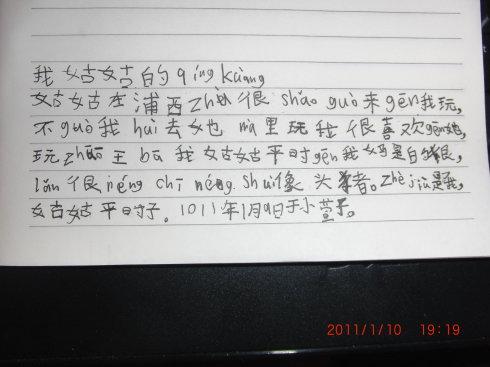 我姑姑的qíng kuàng
姑姑在浦西zhù很shǎo guò来gēn我玩,
不guò我huì去她nà里玩我很喜欢gēn她,
玩 王bā我姑姑平时gēn我妈是白 很,
lǎn很néng chī néng shuì像头猪。zhè jiù是我,
姑姑平时子。1011年1月9日于小萱子。
2011/1/10 19:19